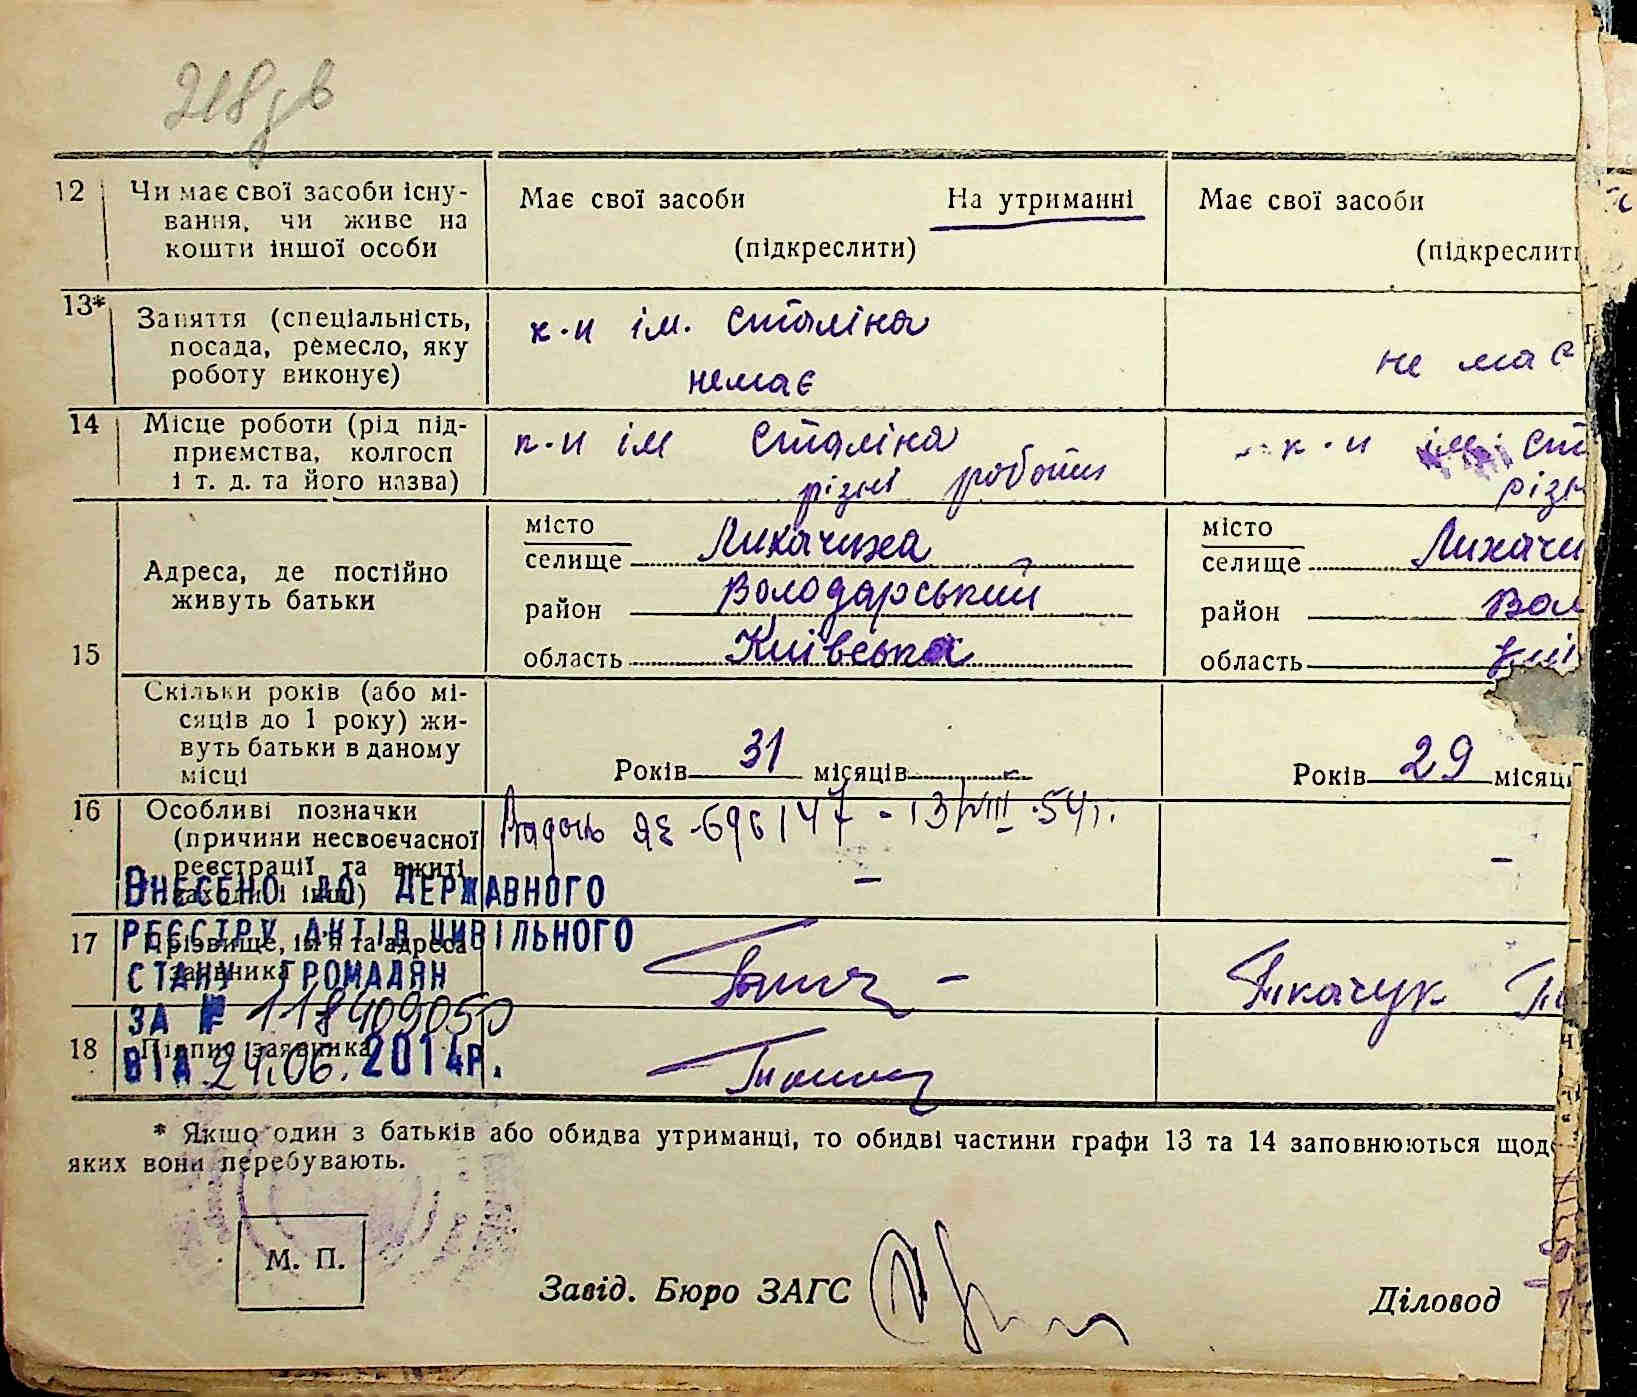 218 дв
12 Чи має свої засоби існу- Має свої засоби На утриманні Має свої засоби
вання, чи живе на
кошти іншої особи (підкреслити) (підкреслит
13* Заняття (спеціальність, к-п ім. Сталіна
посада, ремесло, яку не має
роботу виконує) немає
14 Місце роботи (рід під- к-п ім Сталіна к-п ім Ст
приємства, колгосп різні роботи різн
і т. д. та його назва)
місто місто
селище Лихачиха селище Лихачи
Адреса, де постійно
живуть батьки район Володарський район Вол
15 область Київська область Киї
Скільки років (або мі-
сяців до 1 року) жи-
вуть батьки в даному
місці Років 31 місяців - Років 29 місяц
16 Особливі позначки
(причини несвоєчасної ЯЄ-696147 - 13/VIII-54 г.
реєстрації та вжиті
заходи і інш) - -
ВНЕСЕНО ДО ДЕРЖАВНОГО
РЕЄСТРУ АКТІВ ЦИВІЛЬНОГО
СТАНУ ГРОМАДЯН
ЗА № 118409050
ВІД 24.06.2014р.
17 Прізвище, ім'я та адреса
заявника - Ткачук
18 Підпис заявника
* Якщо один з батьків або обидва утриманці, то обидві частини графи 13 та 14 заповнюються щод
яких вони перебувають.
М. П.
Завід. Бюро ЗАГС Діловод